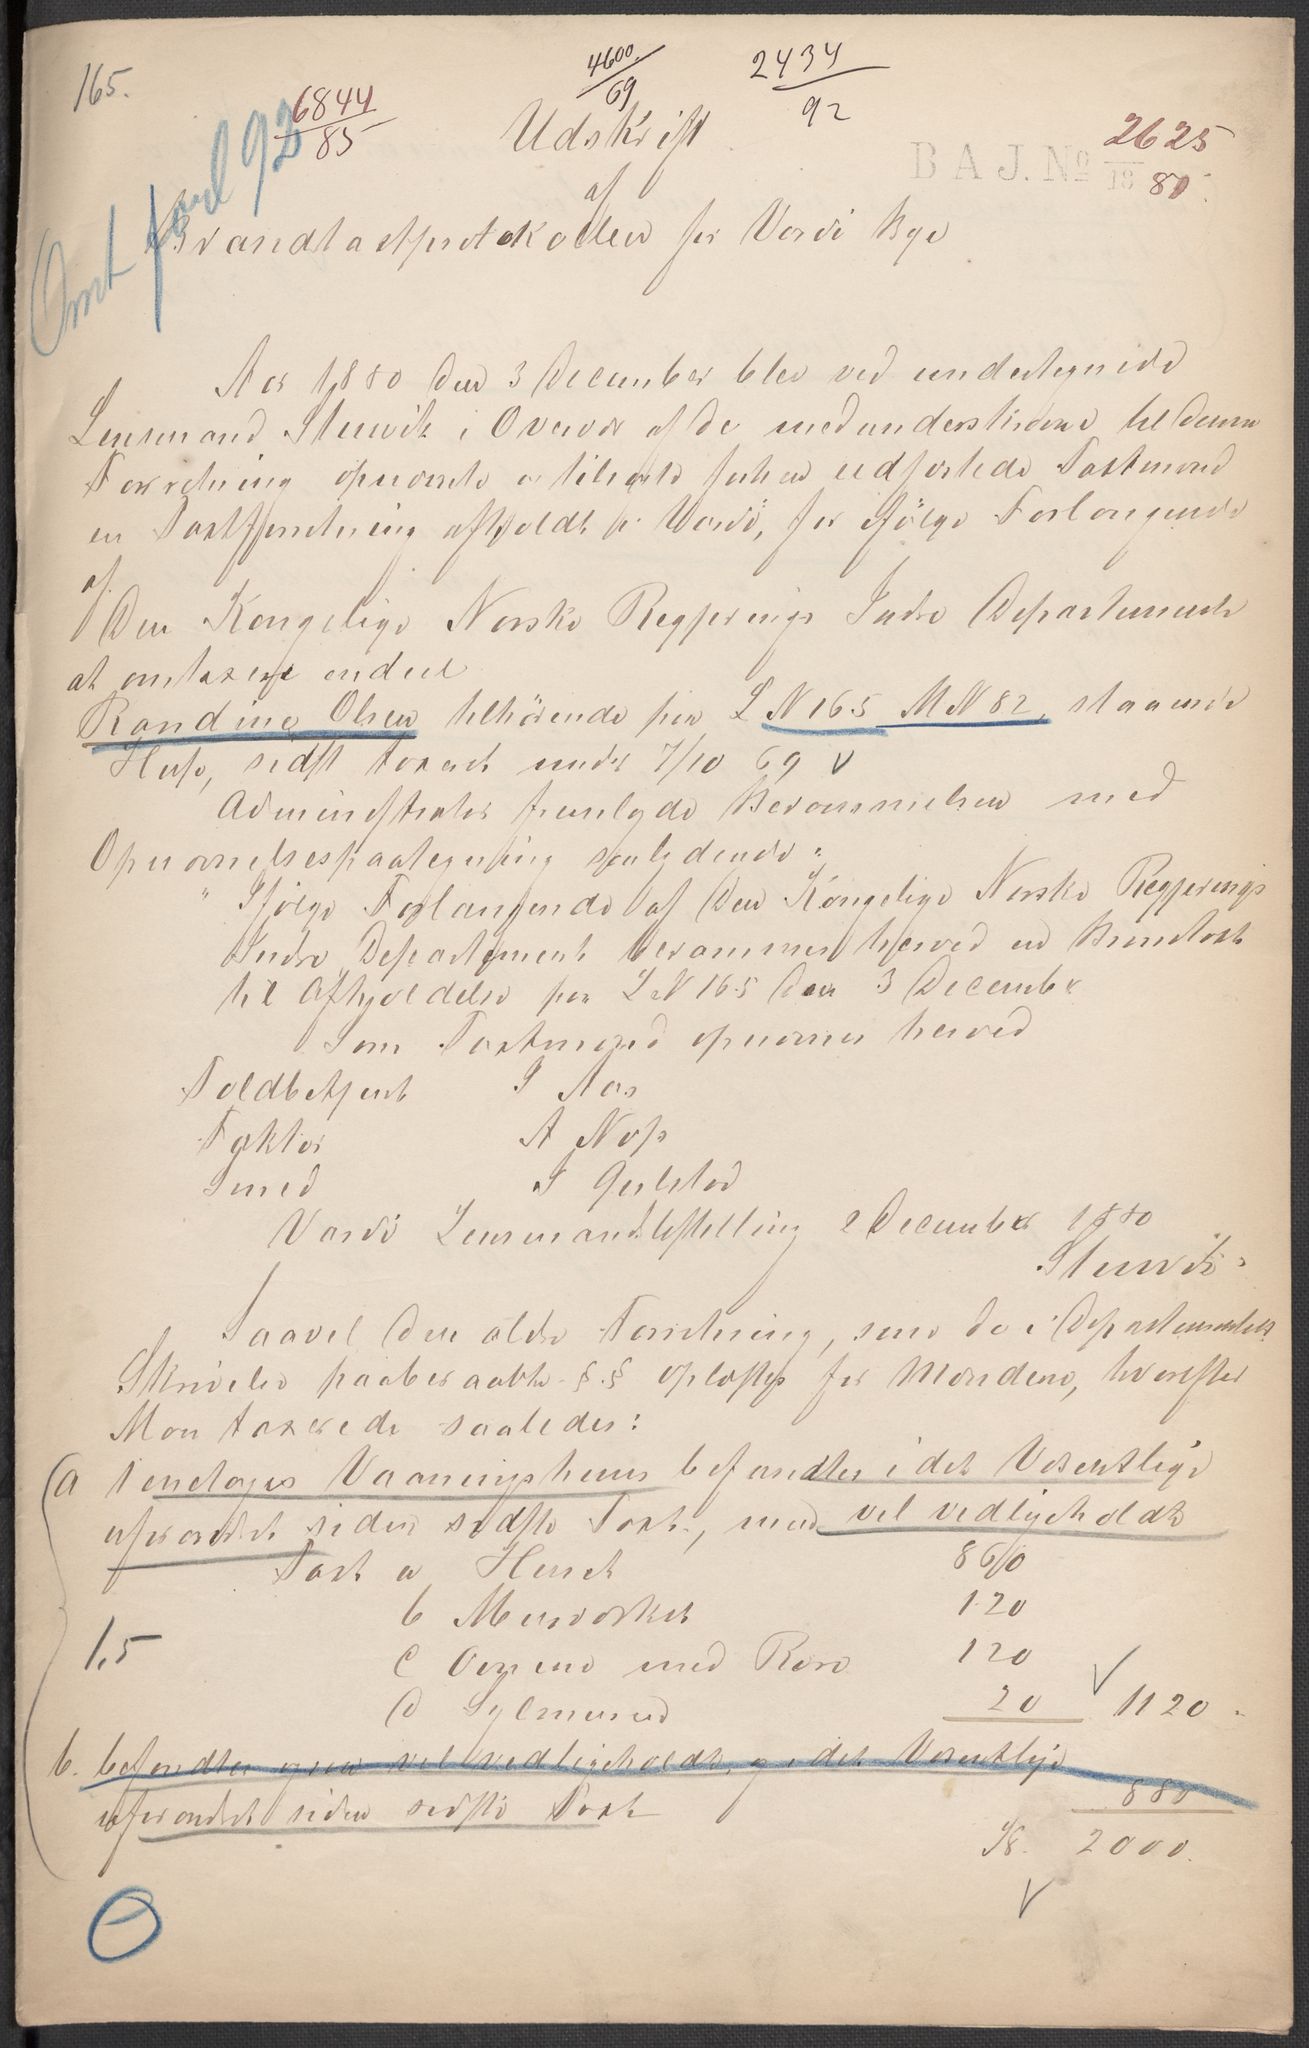 165.
4600
69
2434
92
6844
85
Udskrift
B A J. No 2625
18 80.
Omt paal 92
af
Brandtaxtprotokollen for Vardö Bye
Aar 1880 den 3 December blev ved undertegnede
Lensmand Stuwitz i Overvær af de medunderskrevne til denne
Forretning opnævnte og tilforn forhen edfæstede Taxtmænd
en Taxtforretning afholdt i Vardö, for ifölge Forlangende
af
Den Kongelige Norske Regjerings Indre Departement
at omtaxere endeel
Randine Olsen tilhörende paa L N 165 M N 82, staaende
Huse, sidst taxeret under 7/10 69
Administrator fremlagde Berammelsen med
Opnævnelsespaategning saalydende:
"Ifölge Forlangende af Den Kongelige Norske Regjerings
Indre Departement berammes herved en Brandtaxt
til Afholdelse paa L N 165 den 3 December
Som Taxtmænd opnævnes herved
Toldbetjent I Aas
Faktor A Næss
Smed I Gulstad
Vardö Lensmandbestilling 2 December 1880
Stuwitz"
Saavel den ældre Forretning, som de i Departementets
Skrivelse paaberaabte §.§ oplæstes for Mændene, hvorefter
Man taxerede saaledes:
a 1 enetages Vaaningshuus befandtes i det Væsentlige
uforandret siden sidste Taxt, men vel vedligeholdt
Taxt a Huset 860
b Muurværket 120
1,5
c Ovnene med Rør 120
d Sylmuur 20 1120.
b. befandtes ogsaa vel vedligeholdt, og i det Væsentlige
uforandret siden sidste Taxt 880
Kr. 2000.